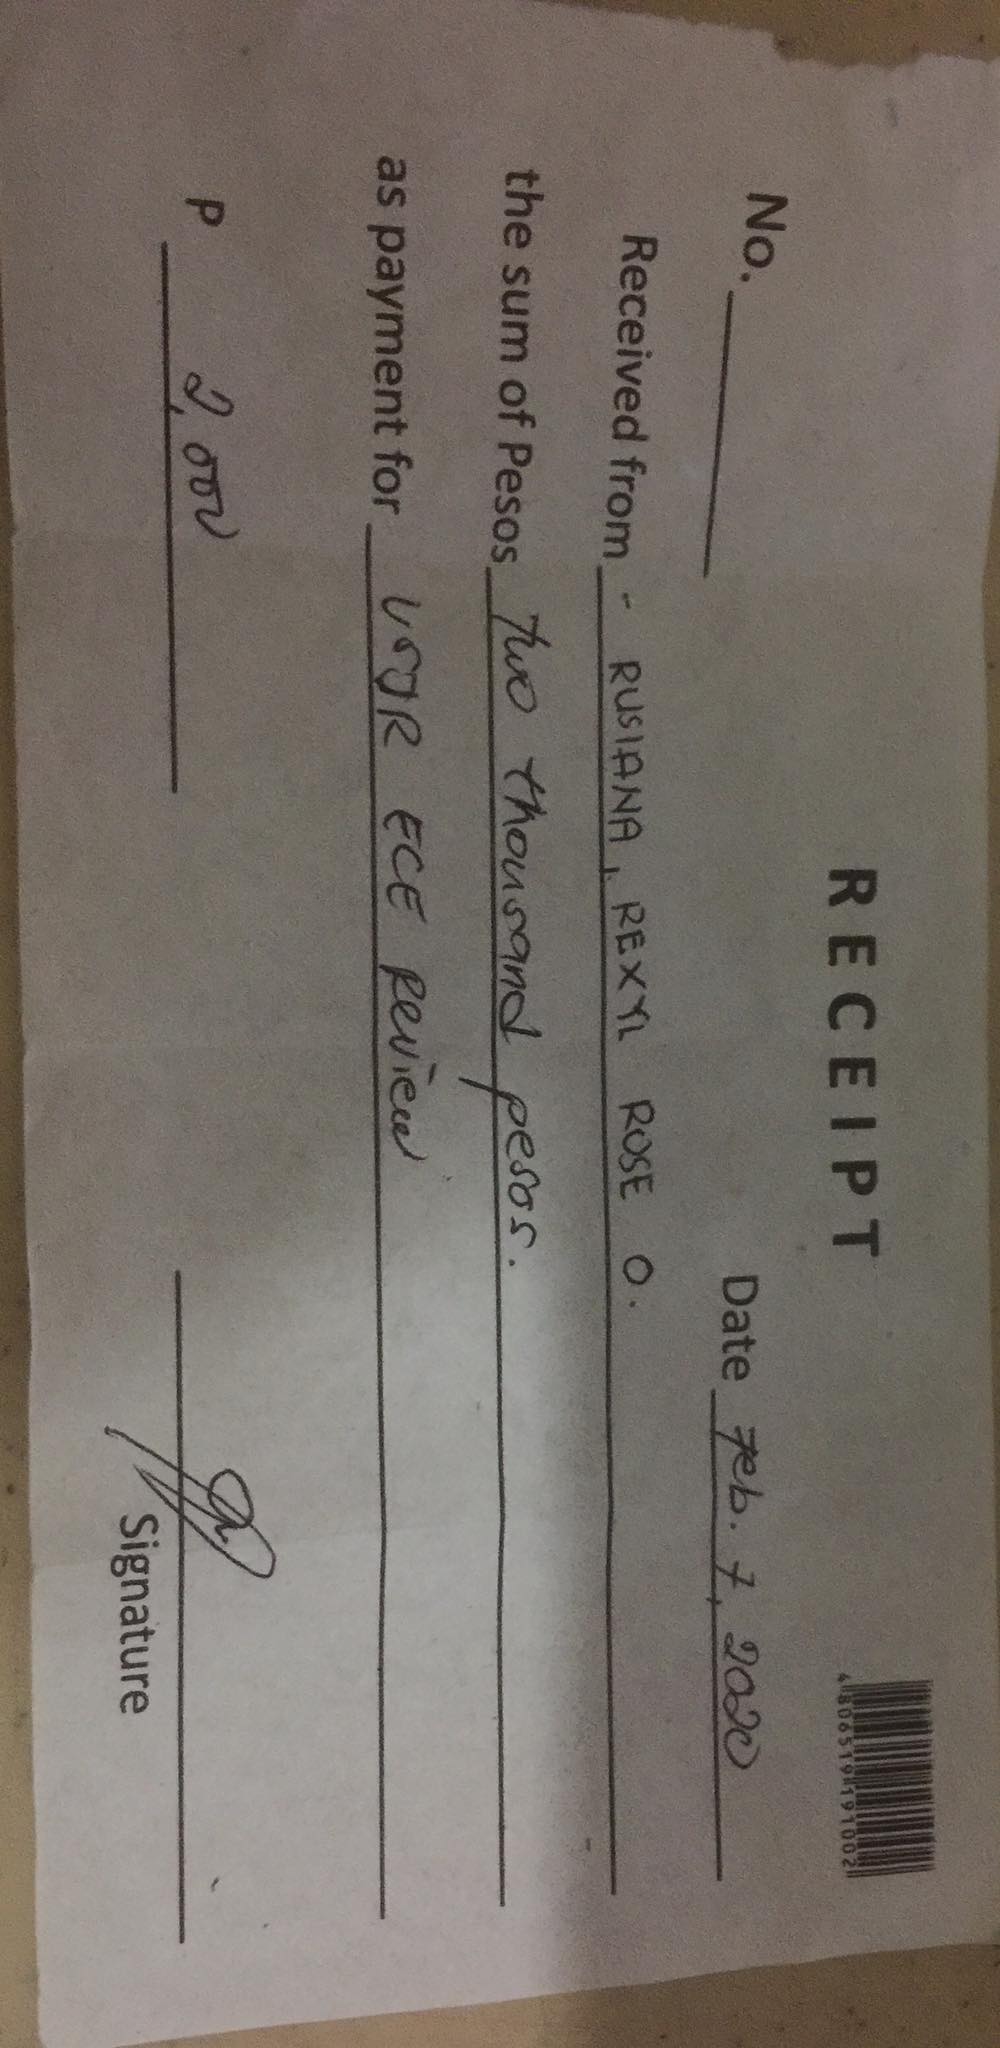 RECEIPT
4806519191002
No. Date Feb. 7, 2020
Received from - RUSIANA, REXYL ROSE O.
the sum of Pesos Two thousand pesos.
as payment for USJR ECE Review
P 2,000
Signature